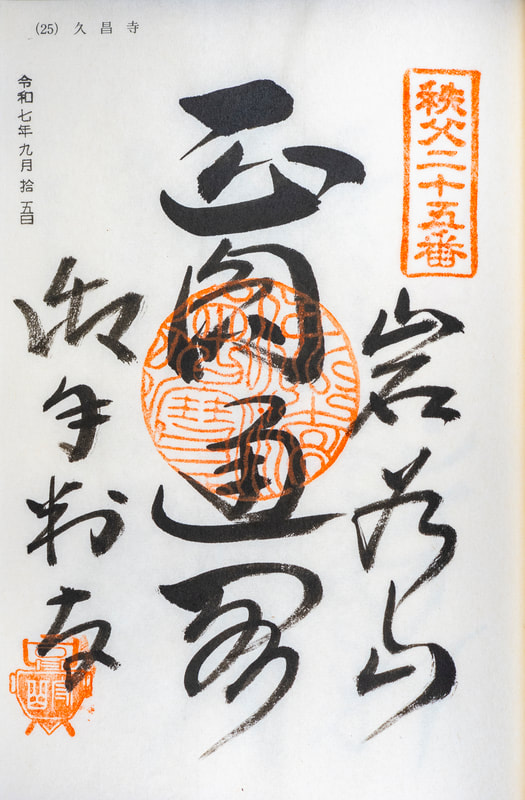 (25) 久昌寺
秩父二十五番
岩谷山
正圓通閣
御手判寺
令和七年九月拾五日